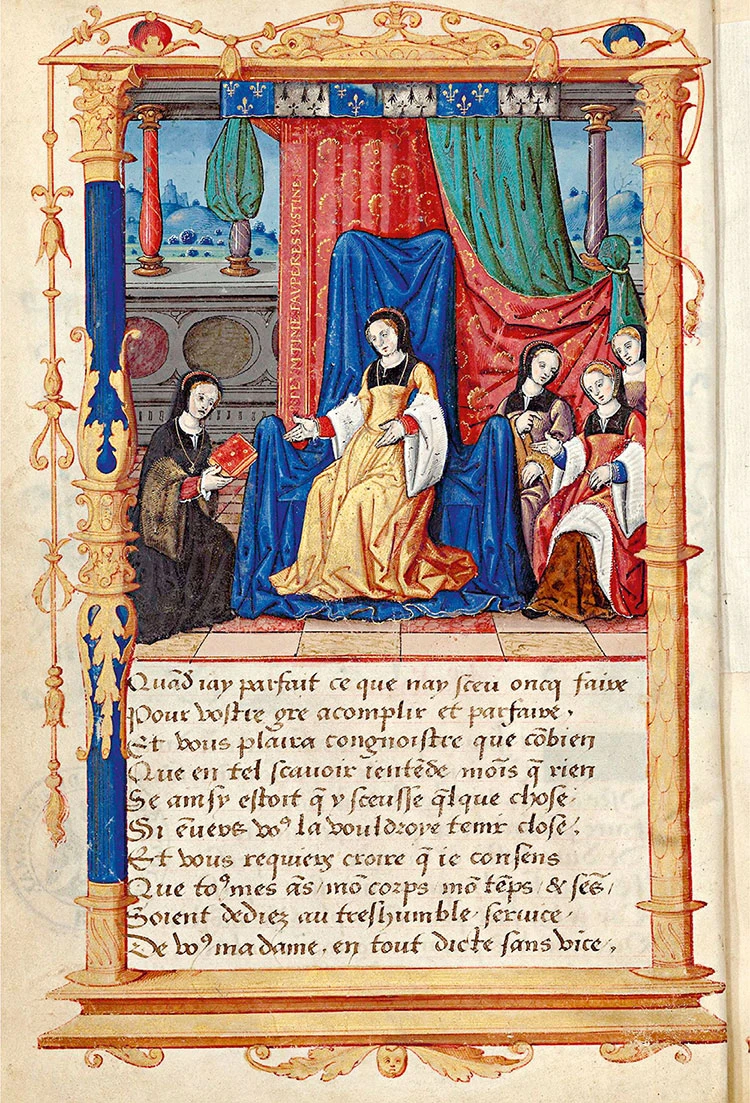 Quãd iay parfait ce que nay sceu oncq faire
Pour vostre gre acomplir et parfaire.
Et vous plaira congnoistre que cõbien
Que en tel scavoir ientẽde moĩs q̃ rien
Se ainsy estoit q̃ y sceusse q̃lque chose.
Si ẽuers voꝰ la vouldroye tenir close.
Et vous requiers croire q̃ ie consens
Que toꝰ mes ãs / mõ corps / mõ tẽps / & sẽs /
Soient dediez au treshumble seruice /
De voꝰ ma dame, en tout dicte sans vice.